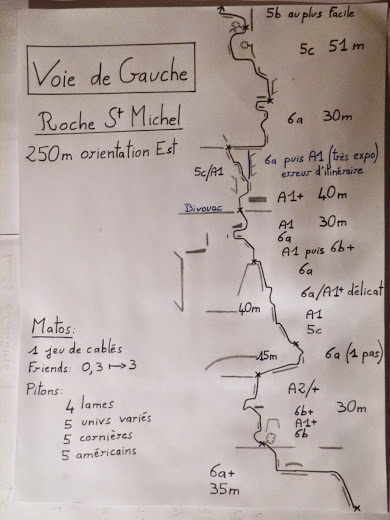 5b au plus facile
Voie de Gauche
5c 51 m
Roche St Michel
6a 30m
250m orientation Est
6a puis A1 (très expo)
erreur d'itinéraire
5c/A1
A1+ 40m
Bivouac
A1 30m
6a
A1 puis 6b+
6a
6a/A1+ délicat
40m
A1
5c
Matos:
15m
6a (1 pas)
1 jeu de cablés
Friends: 0,3 ↦ 3
A2/+
Pitons:
30m
6b+
A1+
6b
4 lames
5 univs variés
5 cornières
5 américains
6a+
35m